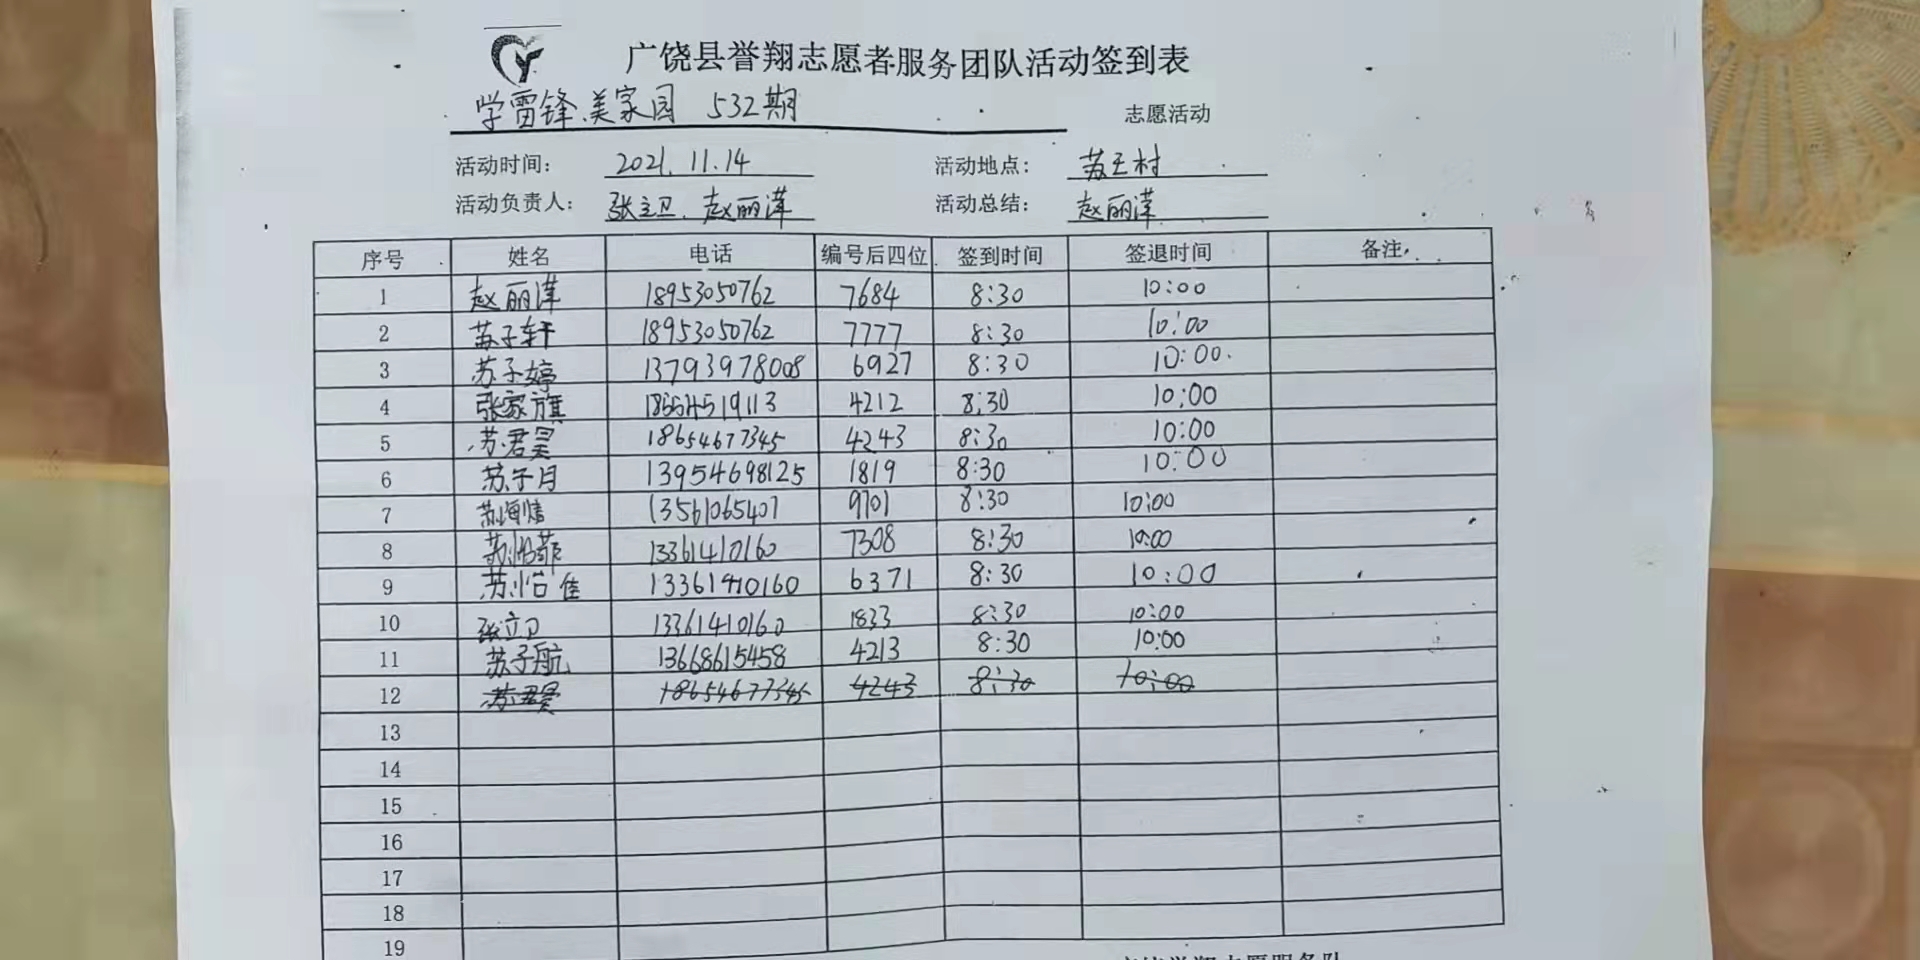 广饶县誉翔志愿者服务团队活动签到表
学雷锋.美家园 532期 志愿活动
活动时间: 2021.11.14 活动地点: 苏王村
活动负责人: 张立卫. 赵丽萍 活动总结: 赵丽萍
序号 姓名 电话 编号后四位 签到时间 签退时间 备注
1 赵丽萍 18953050762 7684 8:30 10:00
2 苏子轩 18953050762 7777 8:30 10:00
3 苏子婷 13793978008 6927 8:30 10:00
4 张家旗 18654519113 4212 8:30 10:00
5 苏君昊 18654677345 4243 8:30 10:00
6 苏子月 13954698125 1819 8:30 10:00
7 苏海 13561065407 9701 8:30 10:00
8 苏 菲 13361410160 7308 8:30 10:00
9 苏怡佳 13361410160 6371 8:30 10:00
10 张立卫 13361410160 1833 8:30 10:00
11 苏子航 13668615458 4213 8:30 10:00
12 苏君昊 18654677345 4243 8:30 10:00
13
14
15
16
17
18
19